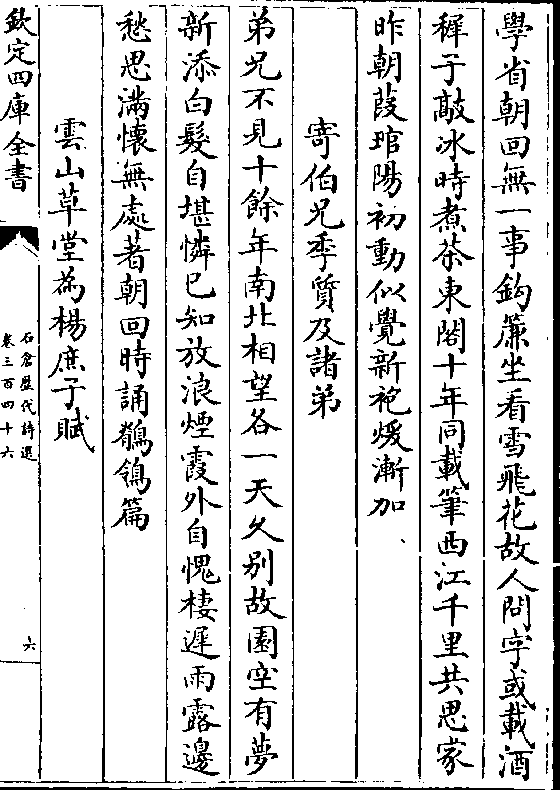 學省朝回無一事鈎簾坐看雪飛花故人問字或載酒
穉子敲冰時煮茶東閣十年同載筆西江千里共思家
昨朝葭琯陽初動似覺新袍煖漸加
寄伯兄季質及諸弟
弟兄不見十餘年南北相望各一天久別故園空有夢
新添白髮自堪憐已知放浪煙霞外自愧棲遲雨露邊
愁思滿懷無處著朝回時誦鶺鴒篇
雲山草堂為楊庶子賦
欽定四庫全書
石倉歷代詩選
卷三百四十六
六